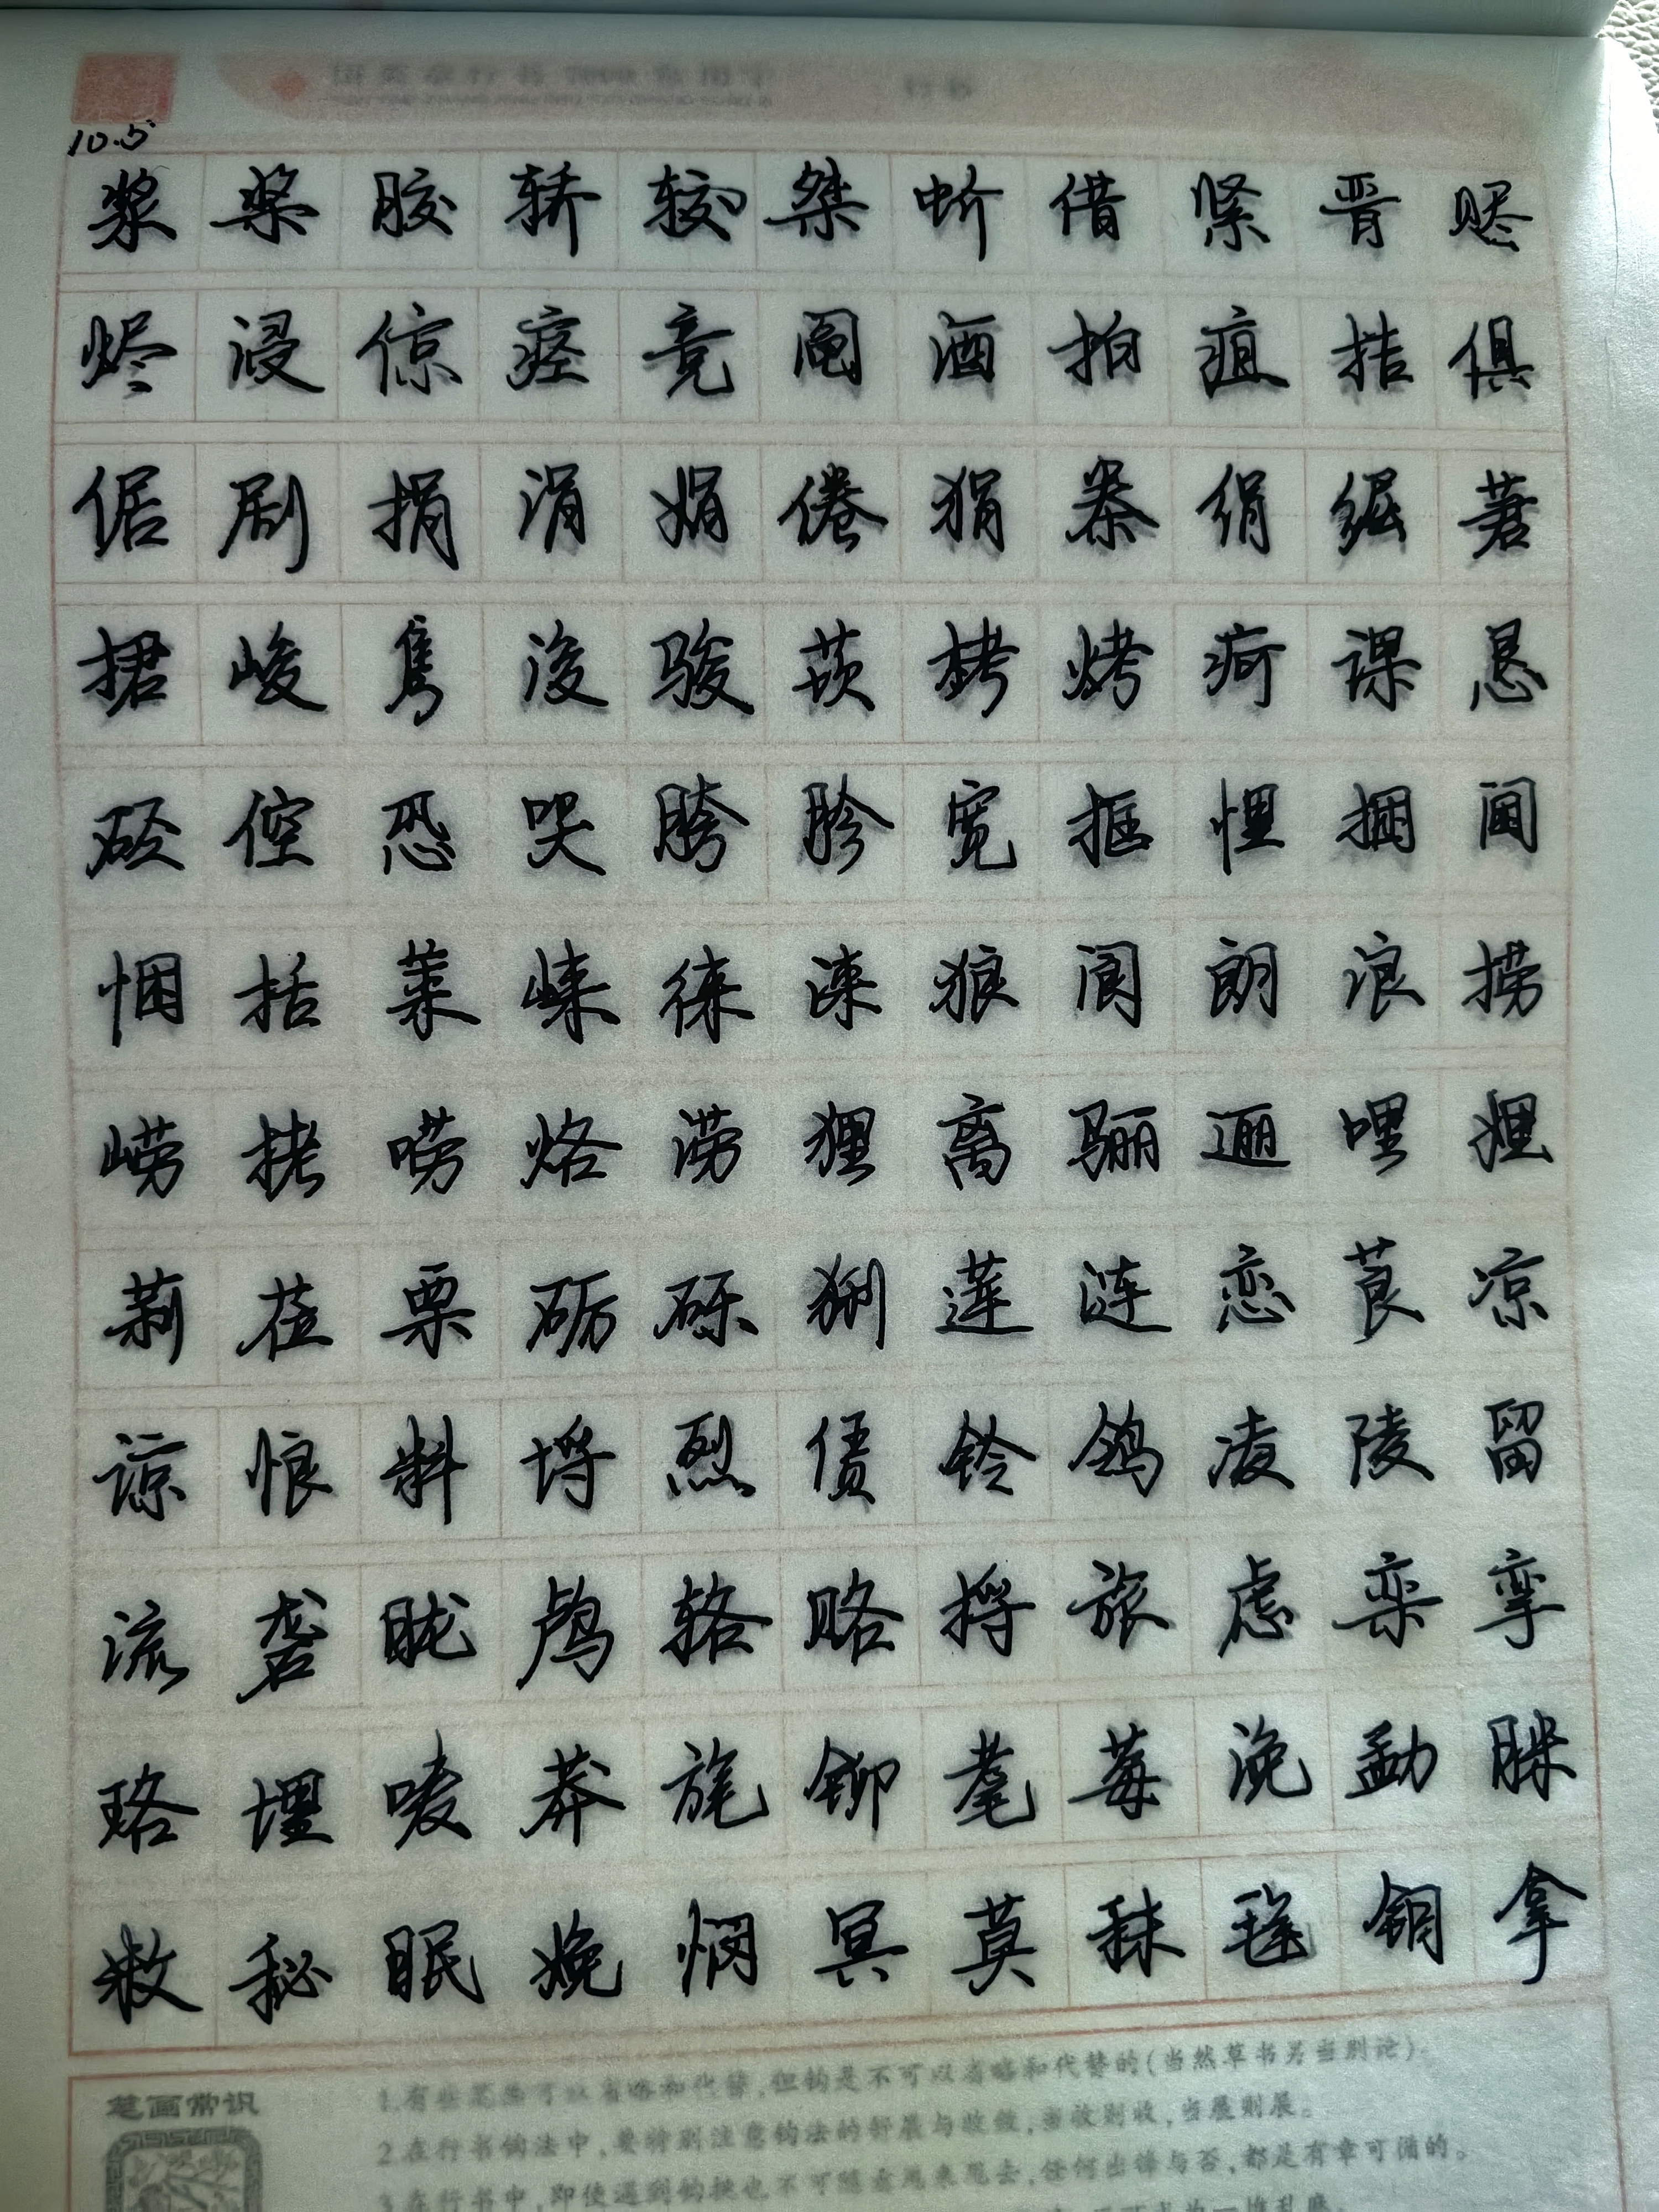 10.5
浆 桨 胶 轿 较 桀 蚧 借 紧 晋 赆
烬 浸 倞 痉 竞 阄 酒 拍 疽 桔 俱
倨 剧 捐 涓 娟 倦 狷 桊 绢 倔 莙
捃 峻 隽 浚 骏 莰 栲 烤 疴 课 恳
硁 倥 恐 哭 胯 胗 宽 框 悝 捆 阃
悃 括 莱 崃 徕 涞 狼 阆 朗 浪 捞
崂 栳 唠 烙 涝 狸 离 骊 逦 哩 娌
莉 莅 栗 砺 砾 猁 莲 涟 恋 莨 凉
谅 悢 料 埒 烈 赁 铃 鸰 凌 陵 留
流 砻 胧 鸬 辂 赂 捋 旅 虑 栾 挛
珞 埋 唛 莽 旄 铆 耄 莓 浼 勐 脒
敉 秘 眠 娩 悯 冥 莫 秣 毪 钼 拿
笔画常识
1.有些笔画可以省略和代替,但钩是不可以省略和代替的(当然草书另当别论)。
2.在行书钩法中,要特别注意钩法的舒展与收敛,当收则收,当展则展。
3.在行书中,即使遇到钩挑也不可随意甩来甩去,任何出锋与否,都是有章可循的。